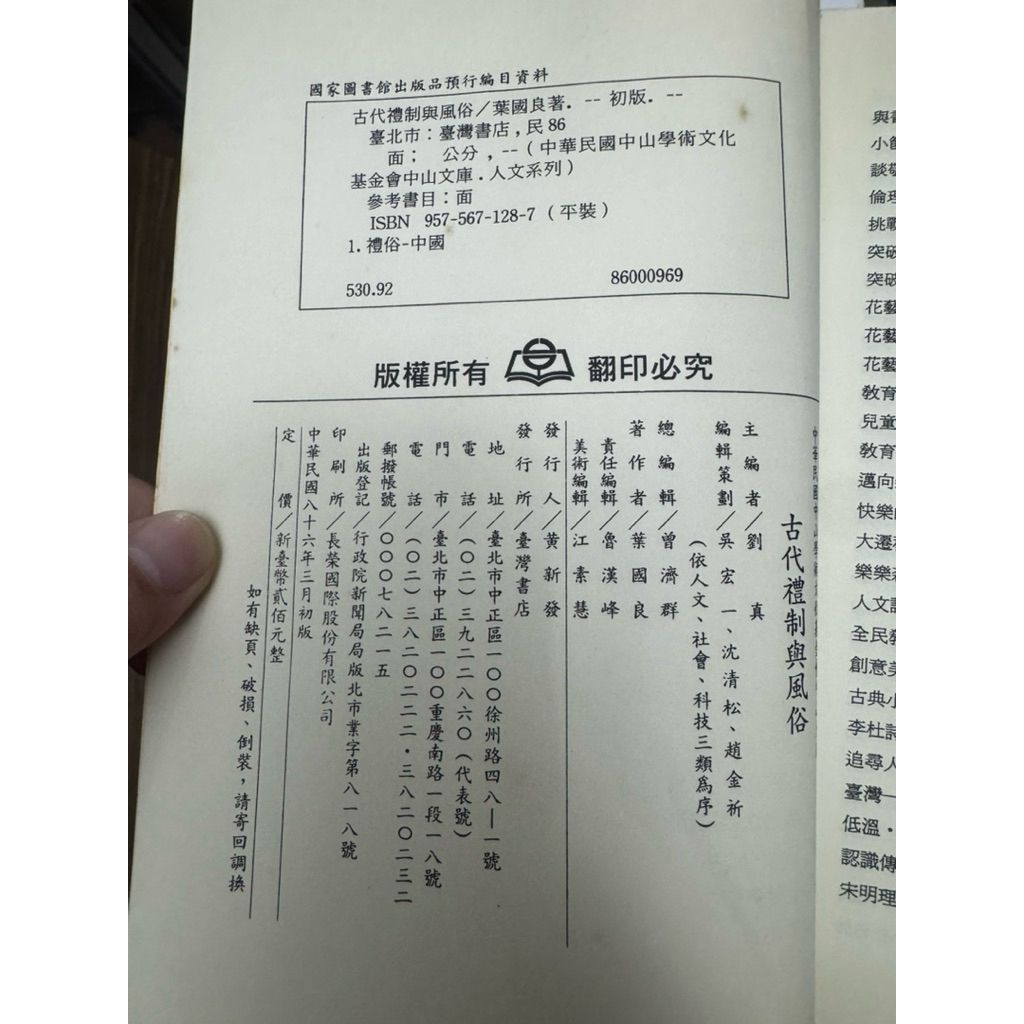 國家圖書館出版品預行編目資料
古代禮制與風俗／葉國良著．-- 初版．--
臺北市：臺灣書店，民86
面；　公分，--（中華民國中山學術文化
基金會中山文庫．人文系列）
參考書目：面
ISBN 957-567-128-7（平裝）
1.禮俗-中國
530.92　86000969
版權所有　翻印必究
古代禮制與風俗
主編者／劉　真
編輯策劃／吳宏一、沈清松、趙金祈
（依人文、社會、科技三類為序）
總編輯／曾濟群
著作者／葉國良
責任編輯／魯漢峰
美術編輯／江素慧
發行人／黃新發
發行所／臺灣書店
地址／臺北市中正區一〇〇徐州路四八—一號
電話／（〇二）三九二二八六〇（代表號）
門市／臺北市中正區一〇〇重慶南路一段一八號
電話／（〇二）三八二〇二二二・三八二〇二三二
郵撥帳號／〇〇〇七八二一五
出版登記／行政院新聞局局版北市業字第八一八號
印刷所／長榮國際股份有限公司
中華民國八十六年三月初版
定價／新臺幣貳佰元整
如有缺頁、破損、倒裝，請寄回調換
與
小
談敬
倫理
挑戰
突破
突破
花藝
花藝
花藝
教育
兒童
教育
邁向
快樂
大遷
樂樂
人文
全民
創意美
古典小
李杜詩
追尋人
臺灣一
低溫・
認識傳
宋明理